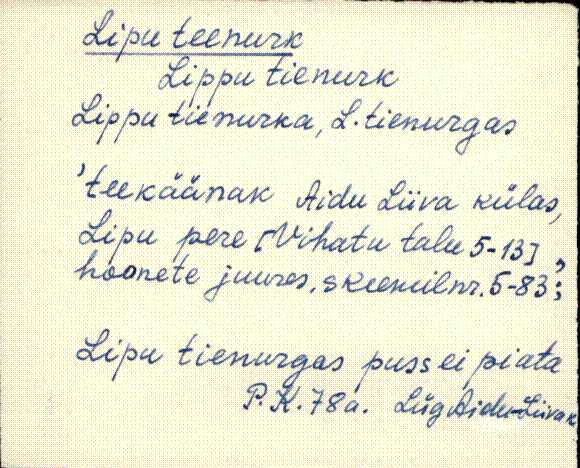 Lipu teenurk
Lippu tienurk
Lippu tienurka, L. tienurgas
'teekäänak Aidu Liiva külas,
Lipu pere [Vihatu talu 5-13]
hoonete juures, skeemil nr. 5-83';
Lipu tienurgas puss ei piata
P. K. 78a. Lüg Aidu-Liiva k